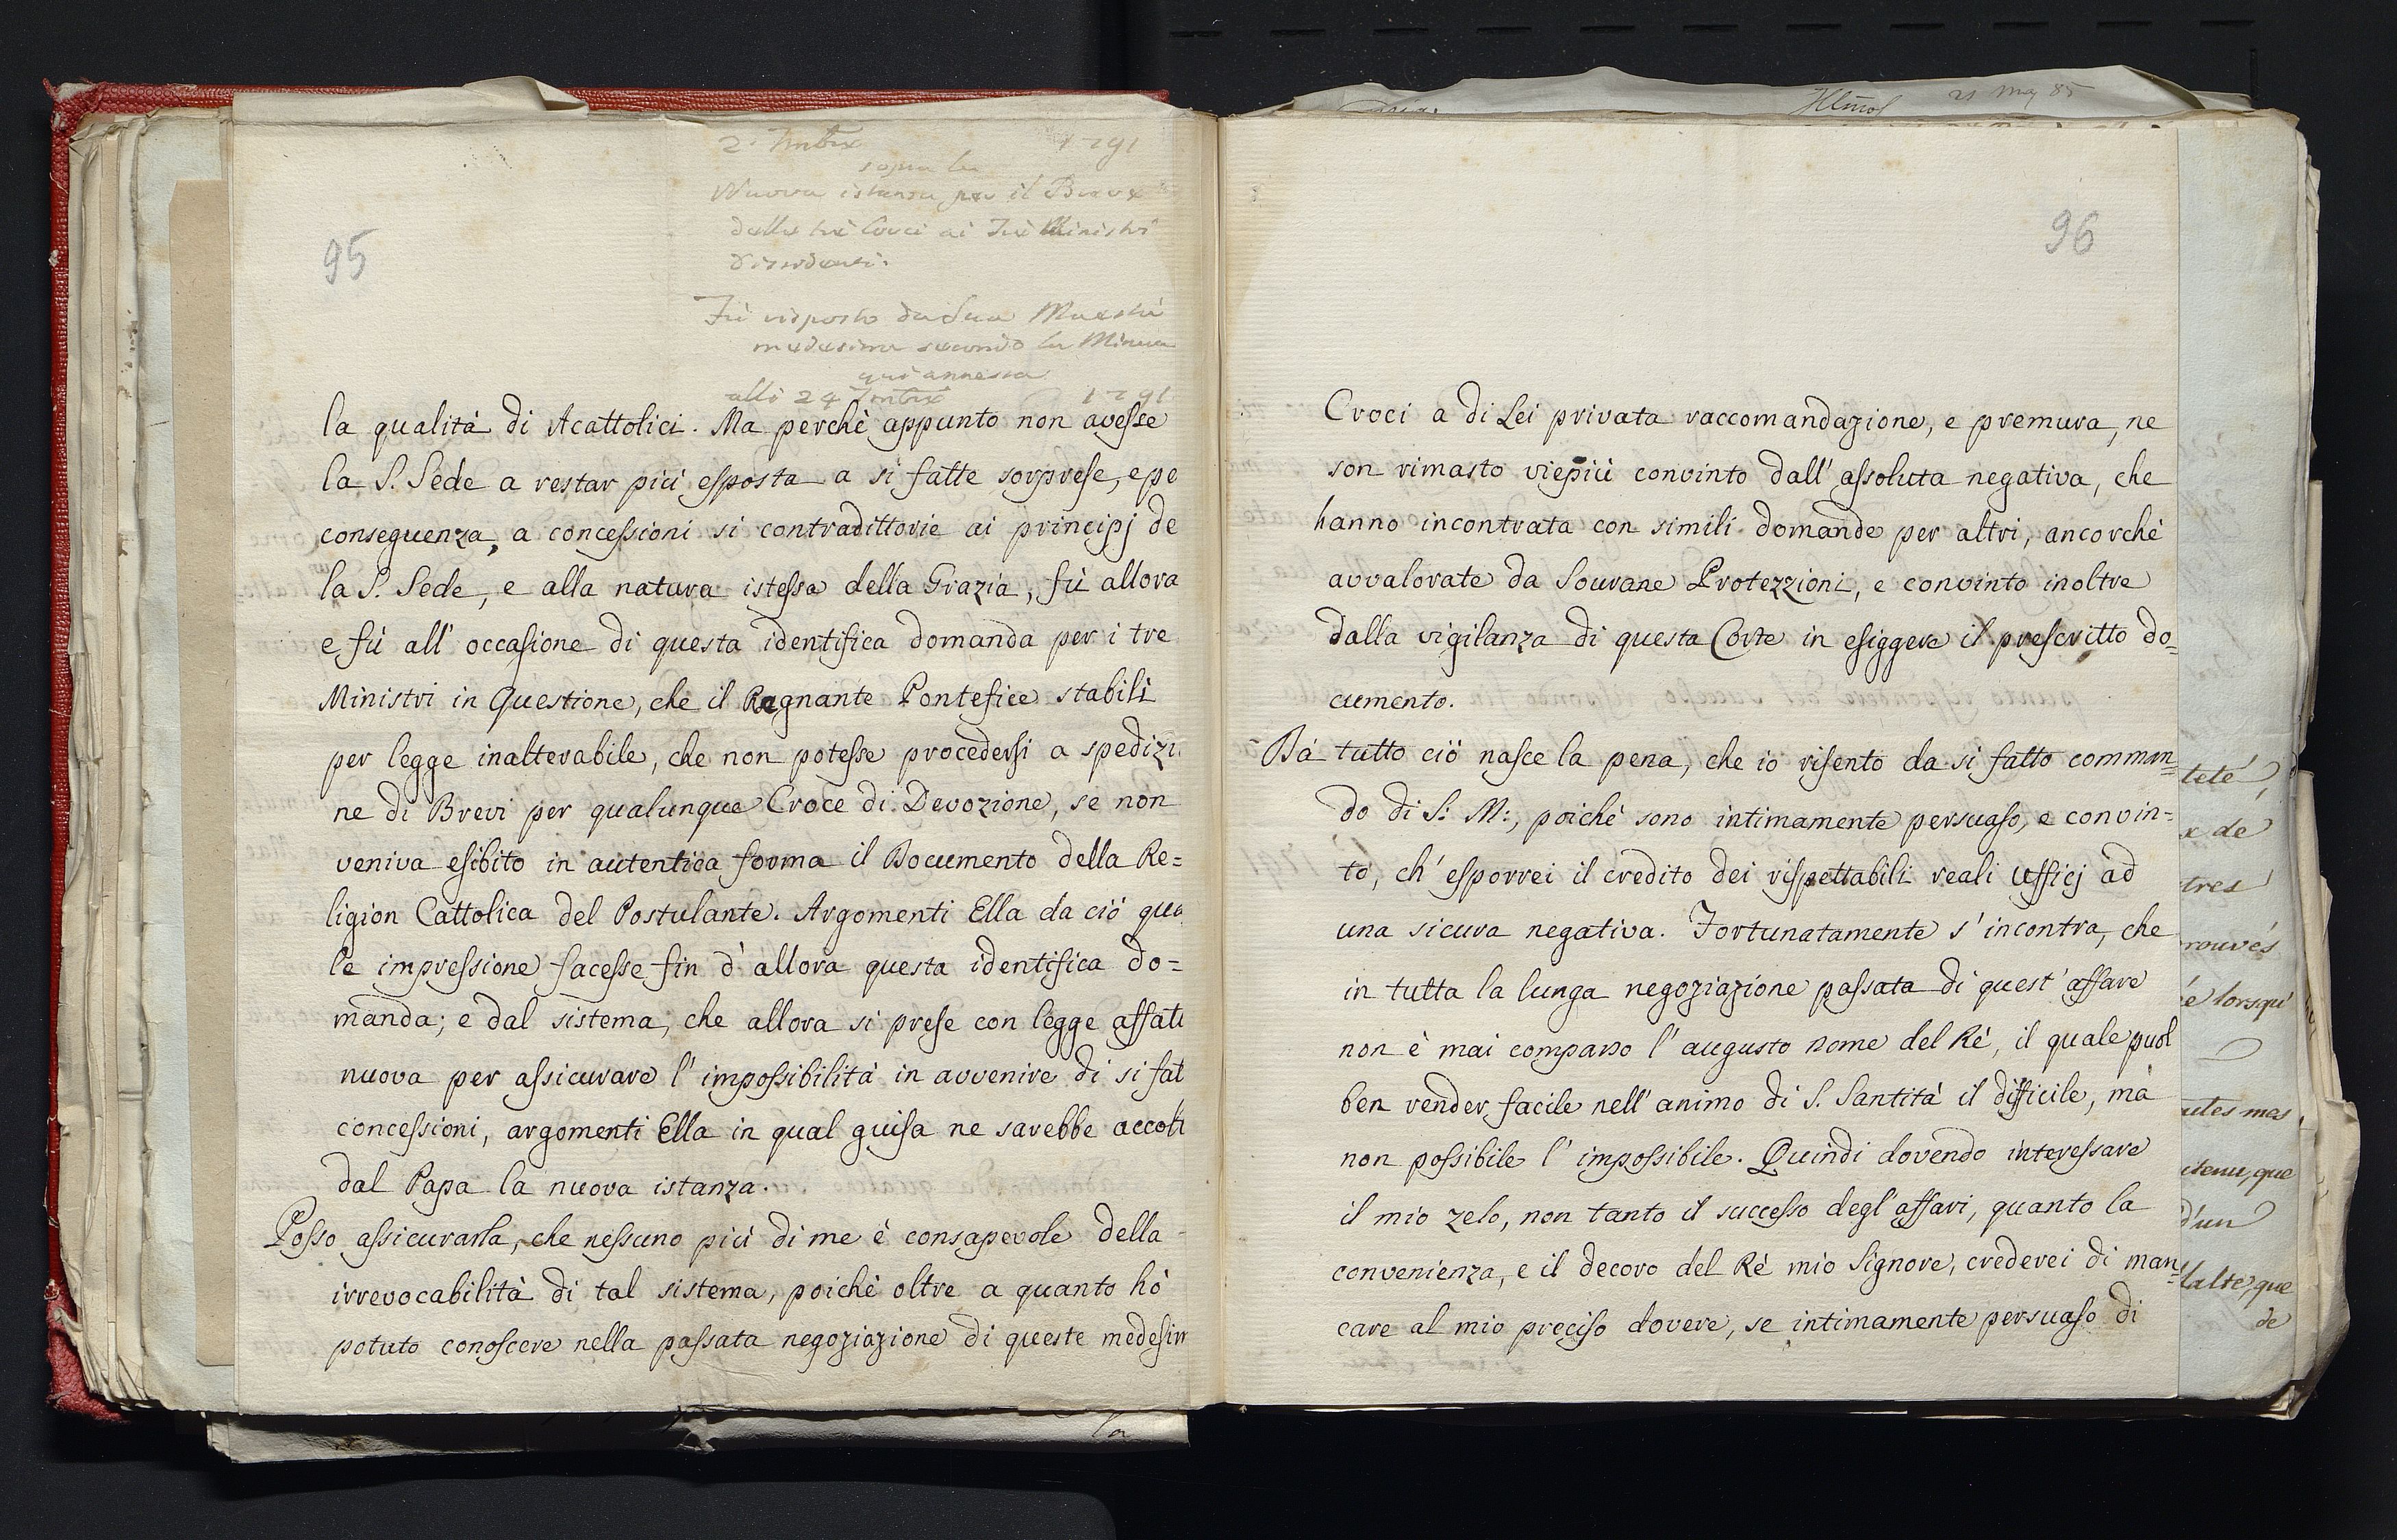 95
2. 7mbre 1791
sopra la
Nuova istanza per il Breve
delle tre Croci ai Tre Ministri
Fù risposto da Sua Maestà
medesima secondo la Minuta
qui annessa
alli 24 7mbre 1791
la qualità di Acattolici. Ma perchè appunto non avesse
la S. Sede a restar più esposta a si fatte sorprese, e pe
conseguenza, a concessioni si contradittorie ai principj de
la S. Sede, e alla natura istessa della Grazia, fù allora
e fù all' occasione di questa identifica domanda per i tre
Ministri in Questione, che il Regnante Pontefice stabilì
per legge inalterabile, che non potesse procedersi a spedizi
ne di Brevi per qualunque Croce di Devozione, se non
veniva esibito in autentica forma il Documento della Re=
ligion Cattolica del Postulante. Argomenti Ella da ciò qua
le impressione facesse fin d' allora questa identifica do=
manda; e dal sistema, che allora si prese con legge affatt
nuova per assicurare l' impossibilità in avvenire di si fat
concessioni, argomenti Ella in qual guisa ne sarebbe accolt
dal Papa la nuova istanza.
Posso assicurarla, che nessuno più di me è consapevole della
irrevocabilità di tal sistema, poichè oltre a quanto hò
potuto conoscere nella passata negoziazione di queste medesim
21 May 85
96
Croci a di Lei privata raccomandazione, e premura, ne
son rimasto viepiù convinto dall' assoluta negativa, che
hanno incontrata con simili domande per altri, ancorchè
avvalorate da Sovrane Protezzioni, e convinto inoltre
dalla vigilanza di questa Corte in esiggere il prescritto do=
cumento.
Da tutto ciò nasce la pena, che io risento da si fatto comman=
do di S: M:, poichè sono intimamente persuaso, e convin=
to, ch' esporrei il credito dei rispettabili reali Ufficj ad
una sicura negativa. Fortunatamente s' incontra, che
in tutta la lunga negoziazione passata di quest' affare
non è mai comparso l' augusto nome del Rè, il quale puol
ben render facile nell' animo di S. Santità il difficile, mà
non possibile l' impossibile. Quindi dovendo interessare
il mio zelo, non tanto il successo degl' affari, quanto la
convenienza, e il decoro del Rè mio Signore, crederei di man=
care al mio preciso dovere, se intimamente persuaso di
teté,
x de
tres
rouvés
é lorsqu'
utes mes
tenu, que
d'un
lalte, que
de